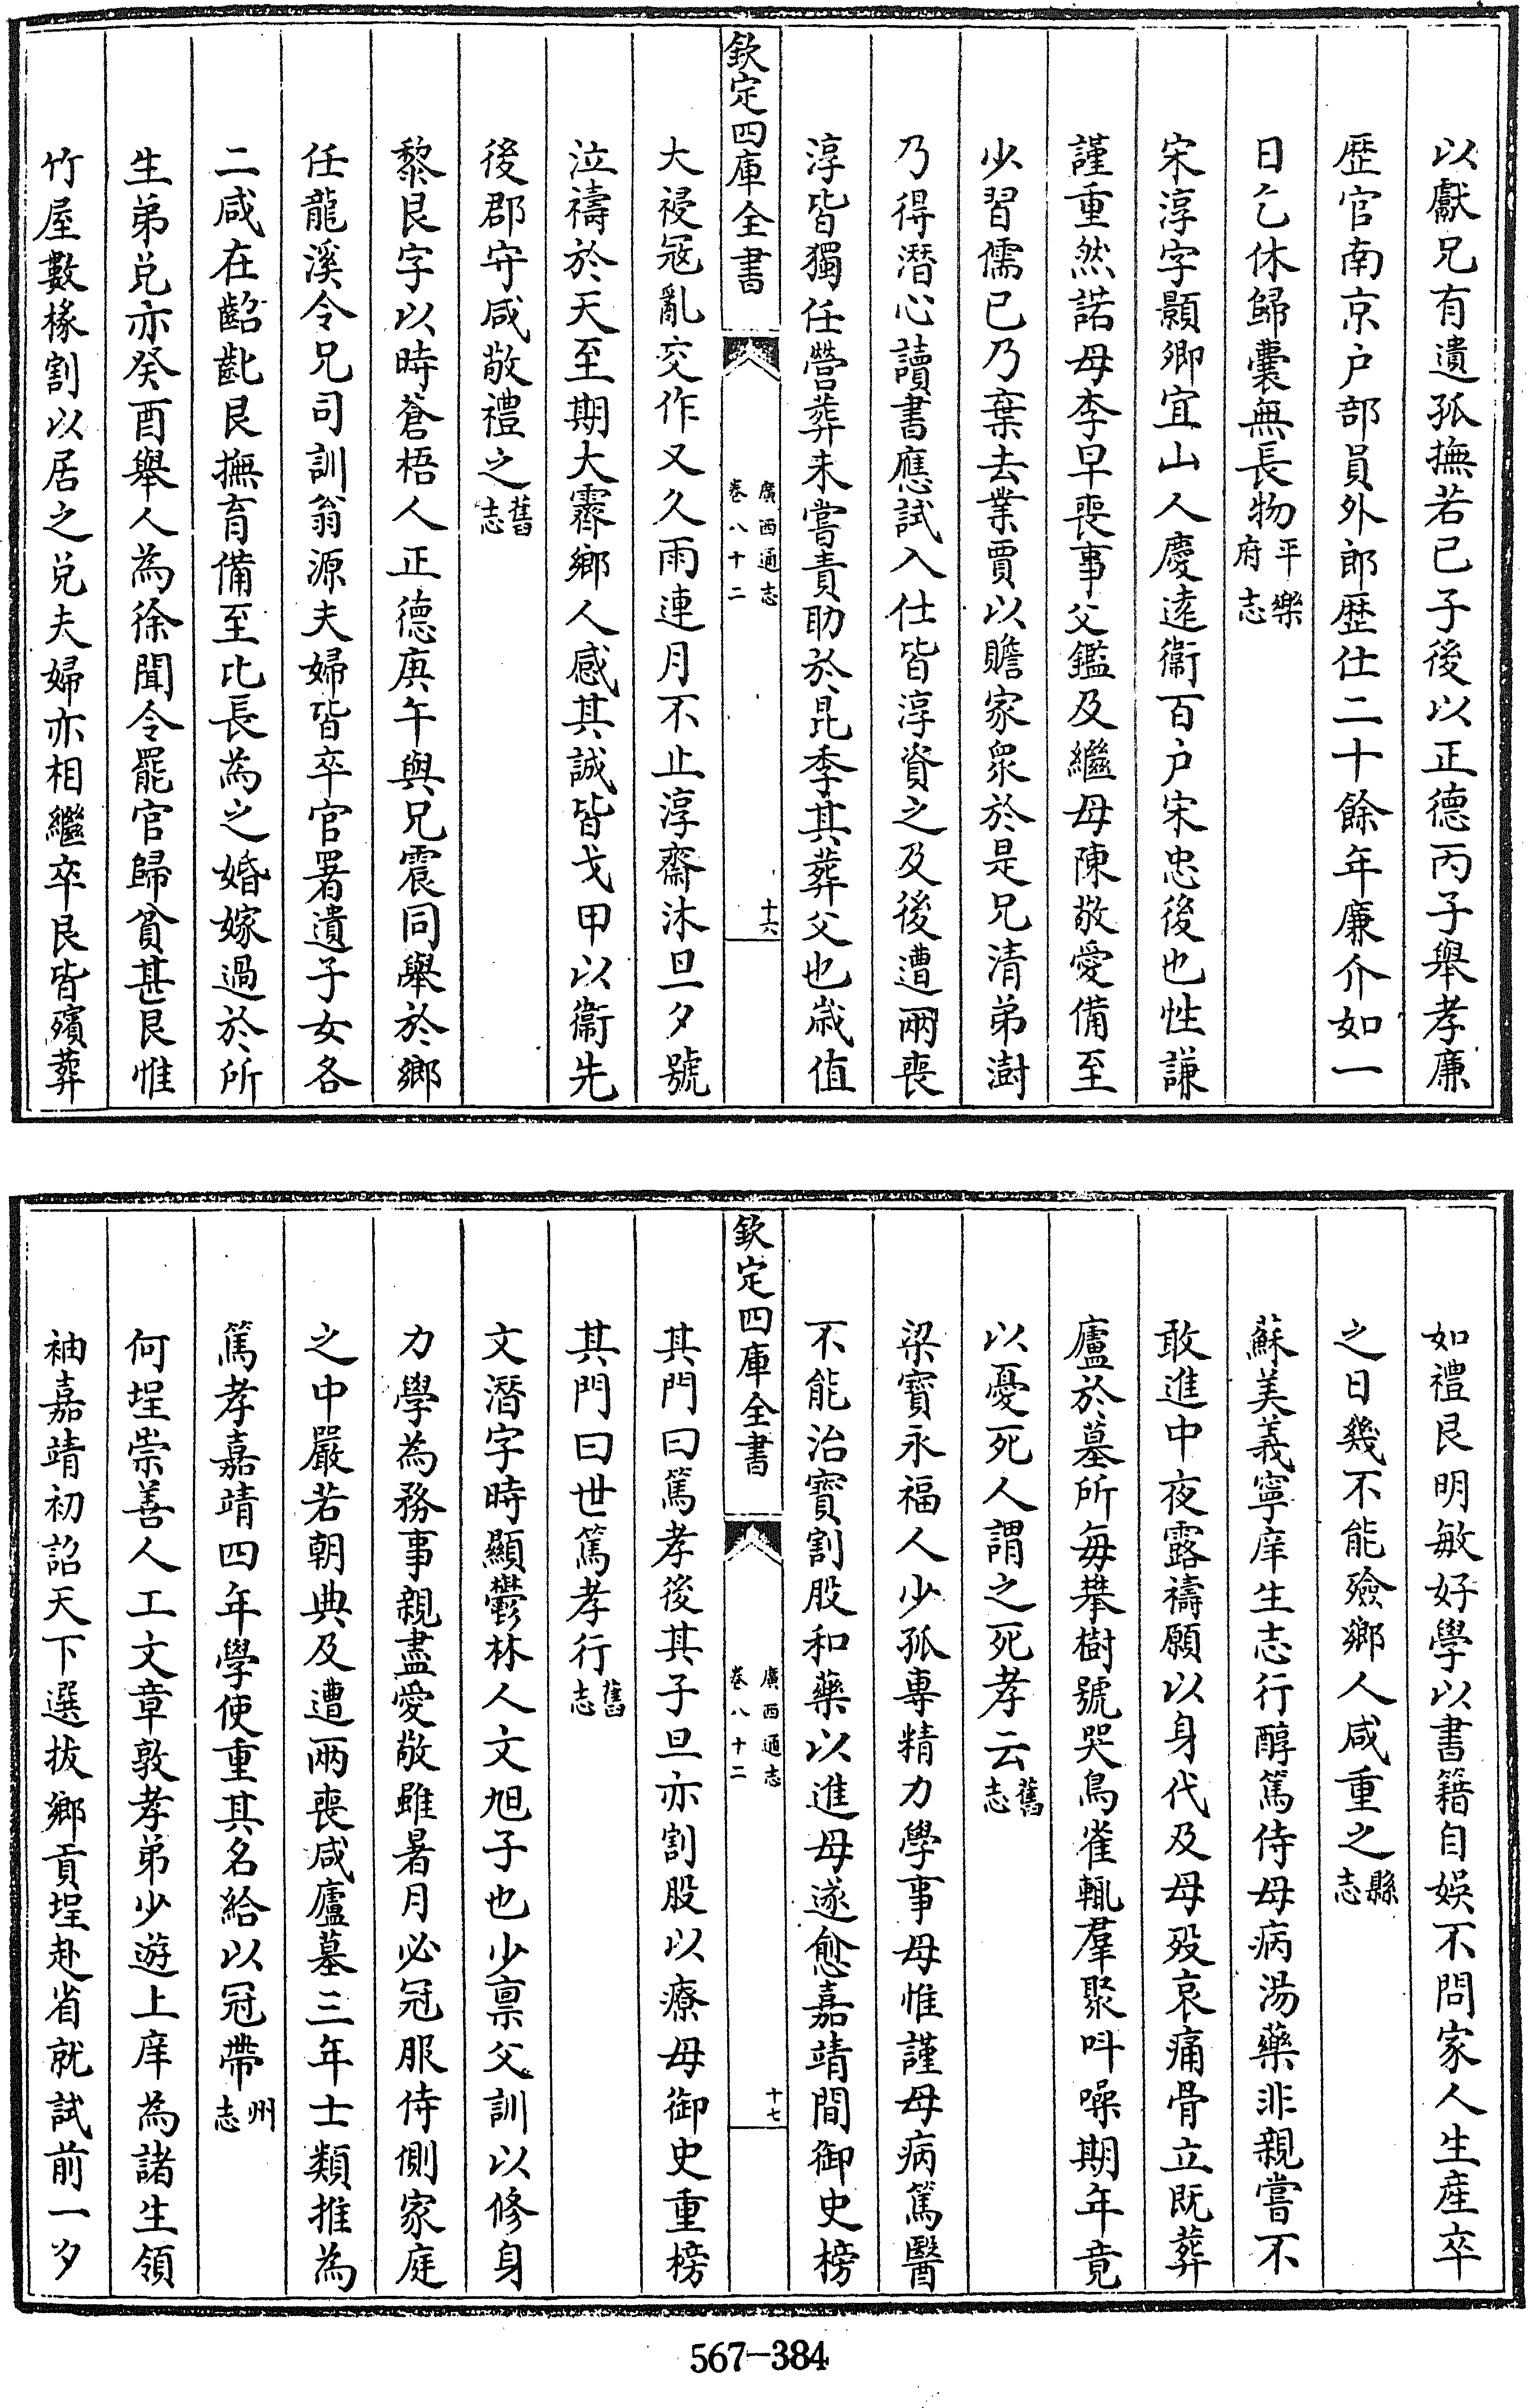 以獻兄有遺孤撫若己子後以正德丙子舉孝廉
歴官南京户部員外郎歴仕二十餘年廉介如一
日乞休歸囊無長物平樂府志
宋淳字顥卿宜山人慶遠衞百户宋忠後也性謙
謹重然諾母李早喪事父鑑及繼母陳敬愛備至
少習儒已乃棄去業賈以贍家衆於是兄清弟澍
乃得潛心讀書應試入仕皆淳資之及後遭兩喪
淳皆獨任營葬未嘗責助於昆季其葬父也歳值
欽定四庫全書
廣西通志
卷八十二
十六
大祲冦亂交作又久雨連月不止淳齋沐旦夕號
泣禱於天至期大霽鄉人感其誠皆戈甲以衞先
後郡守咸敬禮之舊志
黎艮字以時蒼梧人正德庚午與兄震同舉於鄉
任龍溪令兄司訓翁源夫婦皆卒官署遺子女各
二咸在齠齔艮撫育備至比長為之婚嫁過於所
生弟兑亦癸酉舉人為徐聞令罷官歸貧甚艮惟
竹屋數椽割以居之兑夫婦亦相繼卒艮皆殯葬
如禮艮明敏好學以書籍自娛不問家人生産卒
之日幾不能殮鄉人咸重之縣志
蘇美義寧庠生志行醇篤侍母病湯藥非親嘗不
敢進中夜露禱願以身代及母歿哀痛骨立既葬
廬於墓所每攀樹號哭鳥雀輒羣聚呌噪期年竟
以憂死人謂之死孝云舊志
梁寶永福人少孤專精力學事母惟謹母病篤醫
不能治寶割股和藥以進母遂愈嘉靖間御史榜
欽定四庫全書
廣西通志
卷八十二
十七
其門曰篤孝後其子旦亦割股以療母御史重榜
其門曰世篤孝行舊志
文潛字時顯鬱林人文旭子也少稟父訓以修身
力學為務事親盡愛敬雖暑月必冠服侍側家庭
之中嚴若朝典及遭兩喪咸廬墓三年士類推為
篤孝嘉靖四年學使重其名給以冠帶州志
何埕崇善人工文章敦孝弟少遊上庠為諸生領
袖嘉靖初詔天下選拔鄉貢埕赴省就試前一夕
567-384